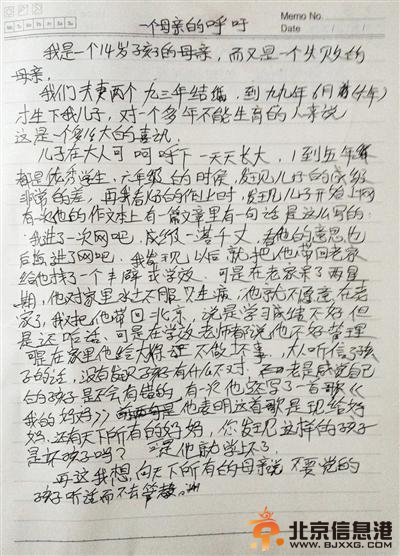 一个母亲的呼吁
Memo No.
Date / /
我是一个14岁孩子的母亲,而又是一个失败的
母亲,
我们夫妻两个九三年结婚,到九九年6月
才生下我儿子,对一个多年不能生育的人来说
这是一个多么大的喜讯
儿子在大人可呵呼下一天天长大,1到五年级
都是优秀学生,六年级的时候,发现儿子的成绩
非常的差,再我看他的作业时,发现儿子开始上网
有次他的作文本上有一篇文章里有一句话是这么写的:
我进了一次网吧,成绩一落千丈,看他的意思也
后悔进了网吧。我发现以后就把他带回老家
给他找了一个学校。可是在老家呆了两星
期,他对家里水土不服只生病,他就不愿意在老
家了,我把他带回北京,说是学习成绩不好但
是还听话,可是在学校老师都说他不好管理
可是在家里他给大人保证不做坏事,大人听信了孩
子的话,没有发现孩子有什么不对,老是感觉自己
的孩子是不会有错的,有次他还写了一首歌《
我的妈妈》他表明这首歌是献给妈
妈,还有天下所有的妈妈,你发现这样的孩子
是坏孩子吗?是他就学坏了,
再这我想向天下所有的母亲说不要觉的
孩子听话而不去管教。
北京信息港
WWW.BJXXG.COM